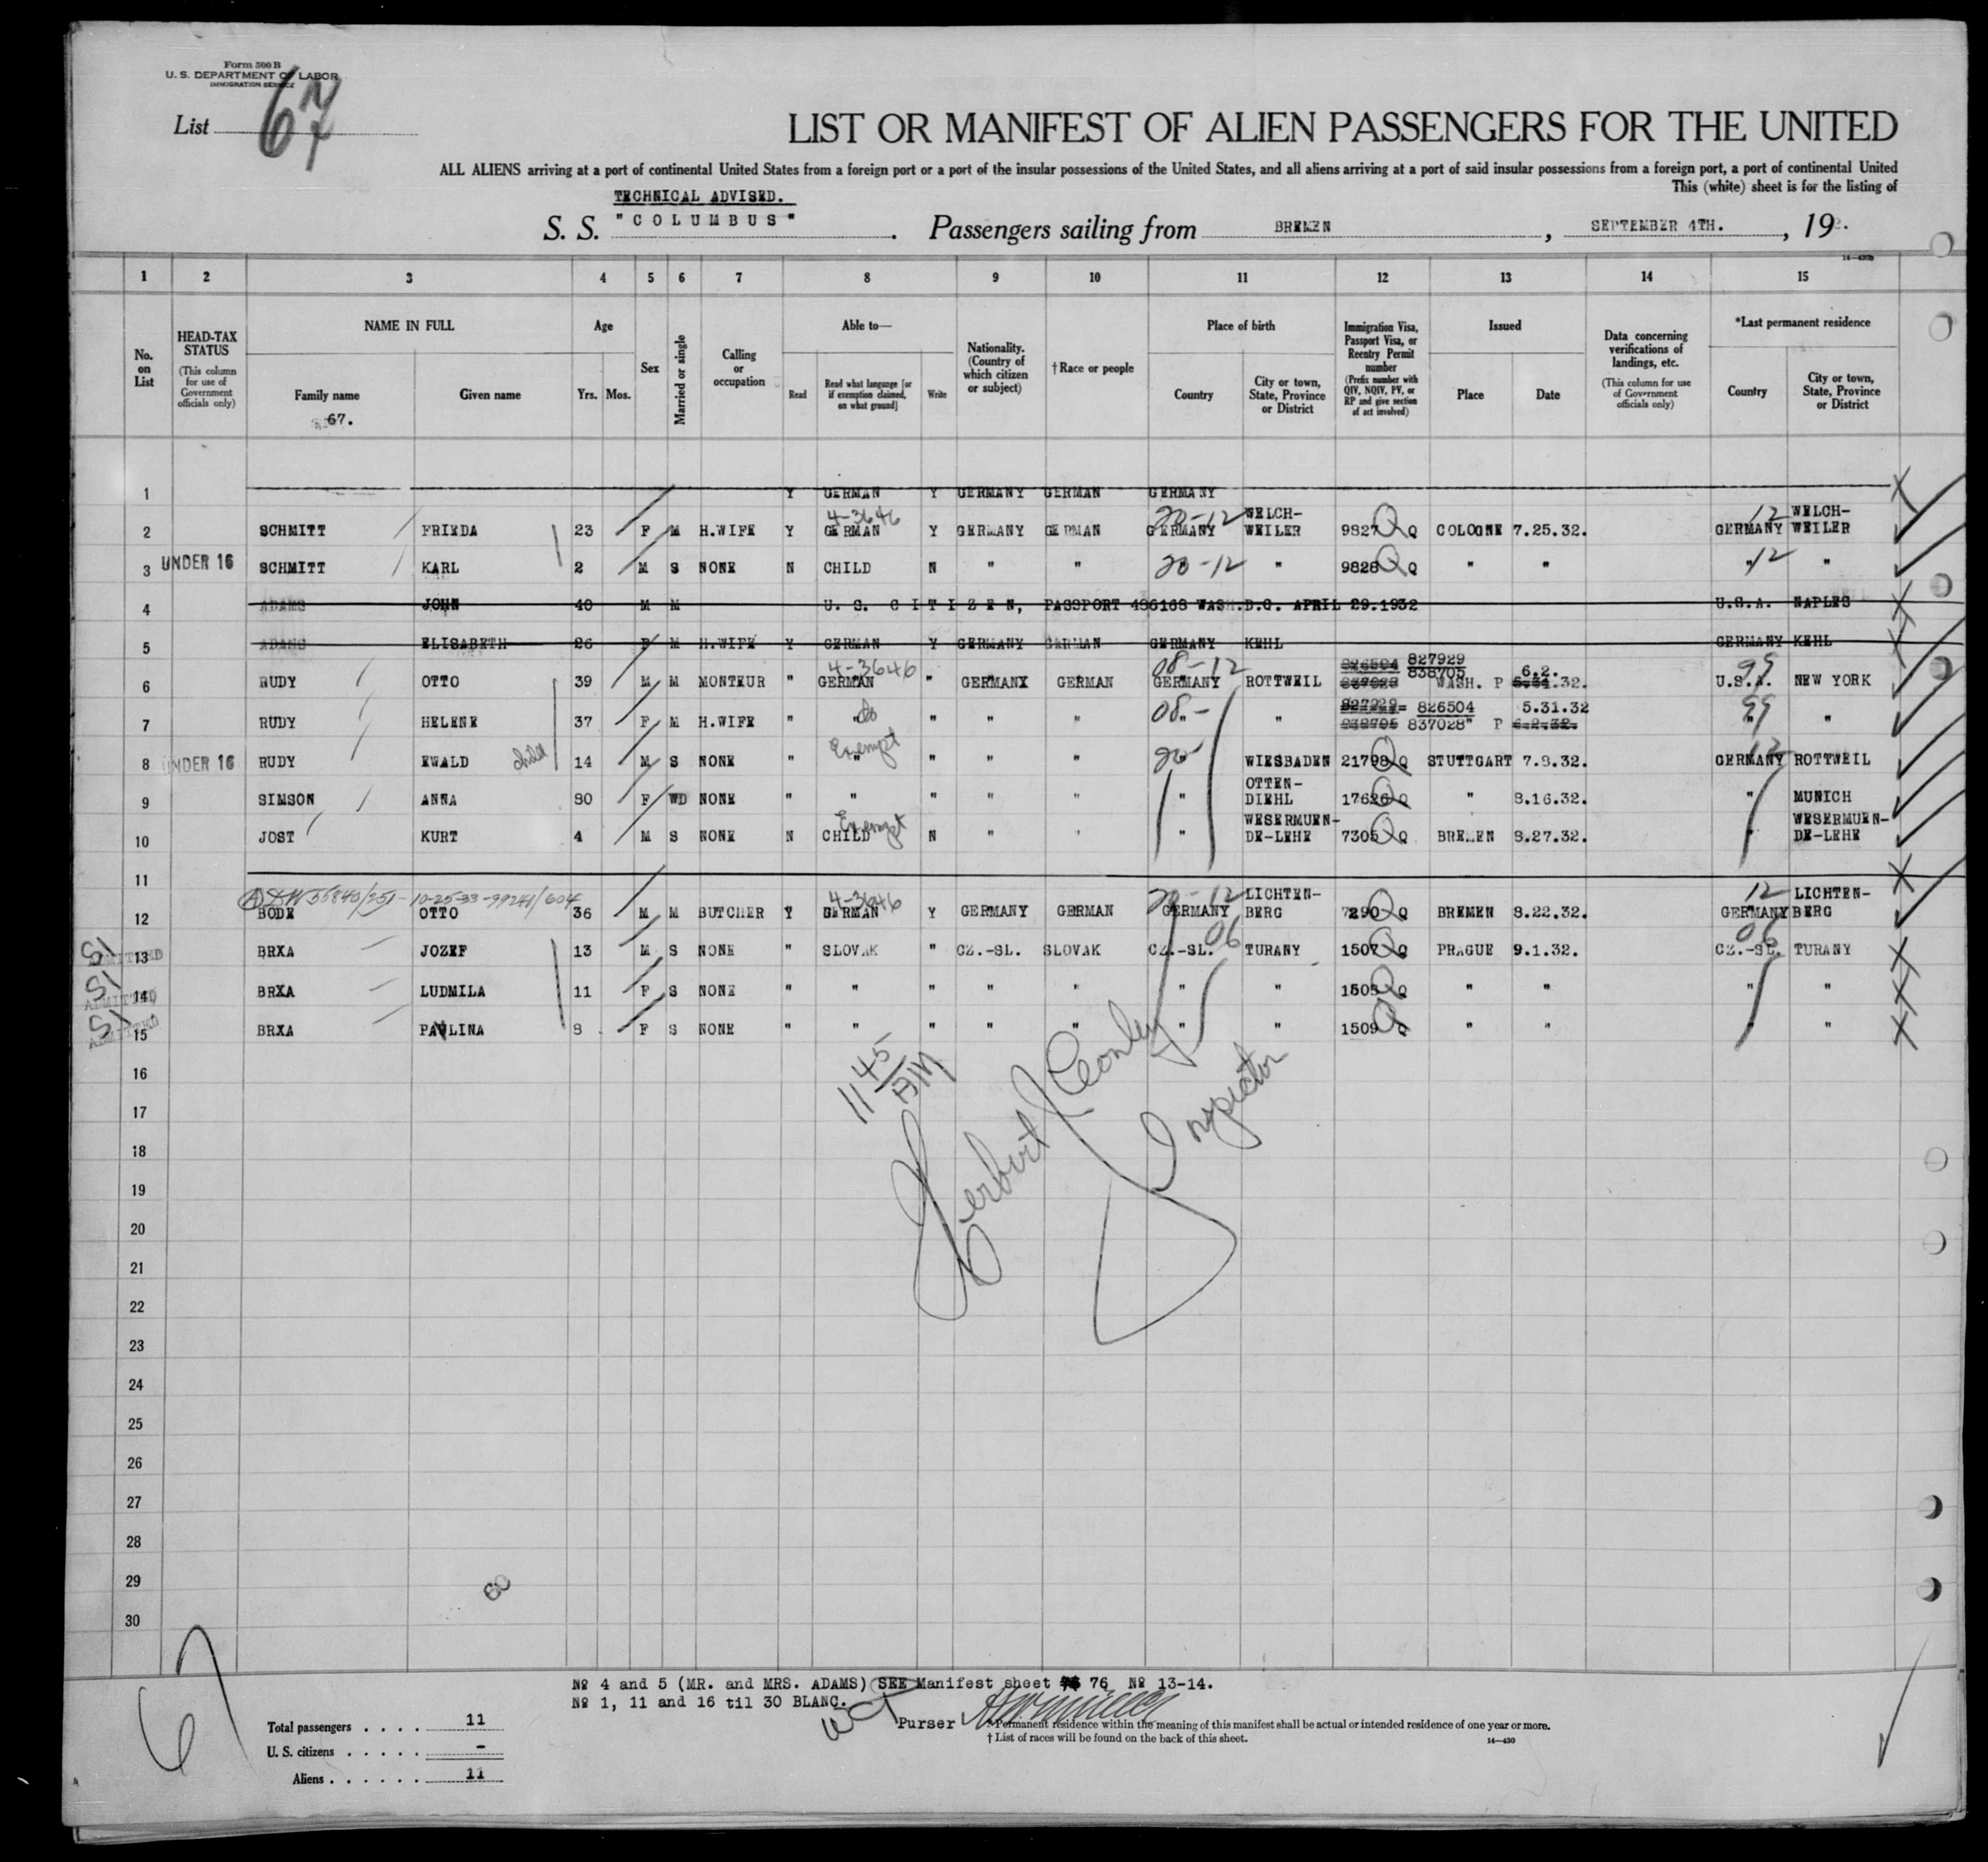 Form 500 B
U. S. DEPARTMENT OF LABOR
IMMIGRATION SERVICE
List 67
LIST OR MANIFEST OF ALIEN PASSENGERS FOR THE UNITED
ALL ALIENS arriving at a port of continental United States from a foreign port or a port of the insular possessions of the United States, and all aliens arriving at a port of said insular possessions from a foreign port, a port of continental United
This (white) sheet is for the listing of
TECHNICAL ADVISED.
S. S. "COLUMBUS". Passengers sailing from BREMEN, SEPTEMBER 4TH., 19
14-430B
1 2 3 4 5 6 7 8 9 10 11 12 13 14 15
No. on List
HEAD-TAX STATUS (This column for use of Government officials only)
NAME IN FULL Family name Given name
67.
Age Yrs. Mos.
Sex
Married or single
Calling or occupation
Able to— Read Read what language [or if exemption claimed, on what ground] Write
Nationality. (Country of which citizen or subject)
†Race or people
Place of birth Country City or town, State, Province or District
Immigration Visa, Passport Visa, or Reentry Permit number (Prefix number with QIV, NQIV, PV, or RP and give section of act involved)
Issued Place Date
Data concerning verifications of landings, etc. (This column for use of Government officials only)
*Last permanent residence Country City or town, State, Province or District
1 Y GERMAN Y GERMANY GERMAN GERMANY
4-3646 20-12 WELCH- 12 WELCH-
2 SCHMITT FRIEDA 23 F M H.WIFE Y GERMAN Y GERMANY GERMAN GERMANY WEILER 9827 Q COLOGNE 7.25.32. GERMANY WEILER
3 UNDER 16 SCHMITT KARL 2 M S NONE N CHILD N " " 20-12 " 9828 Q " " " 12 "
4 ADAMS JOHN 40 M M U. S. CITIZEN, PASSPORT 486168 WASH.D.C. APRIL 29.1932 U.S.A. NAPLES
5 ADAMS ELISABETH 26 F M H.WIFE Y GERMAN Y GERMANY GERMAN GERMANY KEHL GERMANY KEHL
4-3646 08-12 826504 827929 6.2. 99
6 RUDY OTTO 39 M M MONTEUR " GERMAN " GERMANX GERMAN GERMANY ROTTWEIL 837028 838705 WASH. P 5.31.32. U.S.A. NEW YORK
do 08- 827929= 826504 5.31.32 99
7 RUDY HELENE 37 F M H.WIFE " " " " " " " 838705 837028" P 6.2.32. " "
child Exempt 20- 12
8 UNDER 16 RUDY EWALD 14 M S NONE " " " " " WIESBADEN 21798 Q STUTTGART 7.8.32. GERMANY ROTTWEIL
OTTEN-
9 SIMSON ANNA 80 F WD NONE " " " " " " DIEHL 17626 Q " 8.16.32. " MUNICH
Exempt WESERMUEN- WESERMUEN-
10 JOST KURT 4 M S NONE N CHILD N " " " DE-LEHE 7305 Q BREMEN 8.27.32. " DE-LEHE
11
4-3646 20-12 LICHTEN- 12 LICHTEN-
12 BODE OTTO 36 M M BUTCHER Y GERMAN Y GERMANY GERMAN GERMANY BERG 7290 Q BREMEN 8.22.32. GERMANY BERG
06 06
SI ADMITTED 13 BRXA JOZEF 13 M S NONE " SLOVAK " CZ.-SL. SLOVAK CZ.-SL. TURANY 1507 Q PRAGUE 9.1.32. CZ.-SL. TURANY
SI ADMITTED 14 BRXA LUDMILA 11 F S NONE " " " " " " " 1505 Q " " " "
SI ADMITTED 15 BRXA PAVLINA 8 F S NONE " " " " " " " 1509 Q " " " "
16
17
18
19
20
21
22
23
24
25
26
27
28
29
30
11 45 AM
Herbert J Conley
Inspector
60
67
№ 4 and 5 (MR. and MRS. ADAMS) SEE Manifest sheet 76 № 13-14.
№ 1, 11 and 16 til 30 BLANC.
Purser
Total passengers . . . . 11
U. S. citizens . . . . . -
Aliens . . . . . . 11
* Permanent residence within the meaning of this manifest shall be actual or intended residence of one year or more.
† List of races will be found on the back of this sheet.
14—430